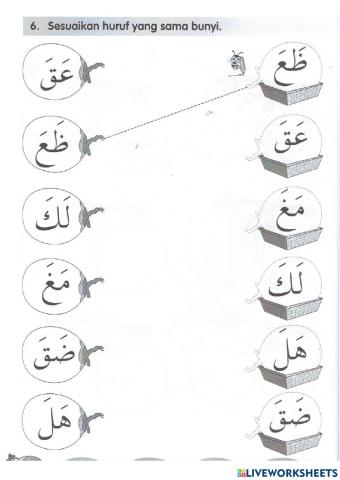 6. Sesuaikan huruf yang sama bunyi.
عَقَ ظَعَ
ظَعَ عَقَ
لَكَ مَغَ
مَغَ لَكَ
ضَقَ هَلَ
هَلَ ضَقَ
LIVEWORKSHEETS